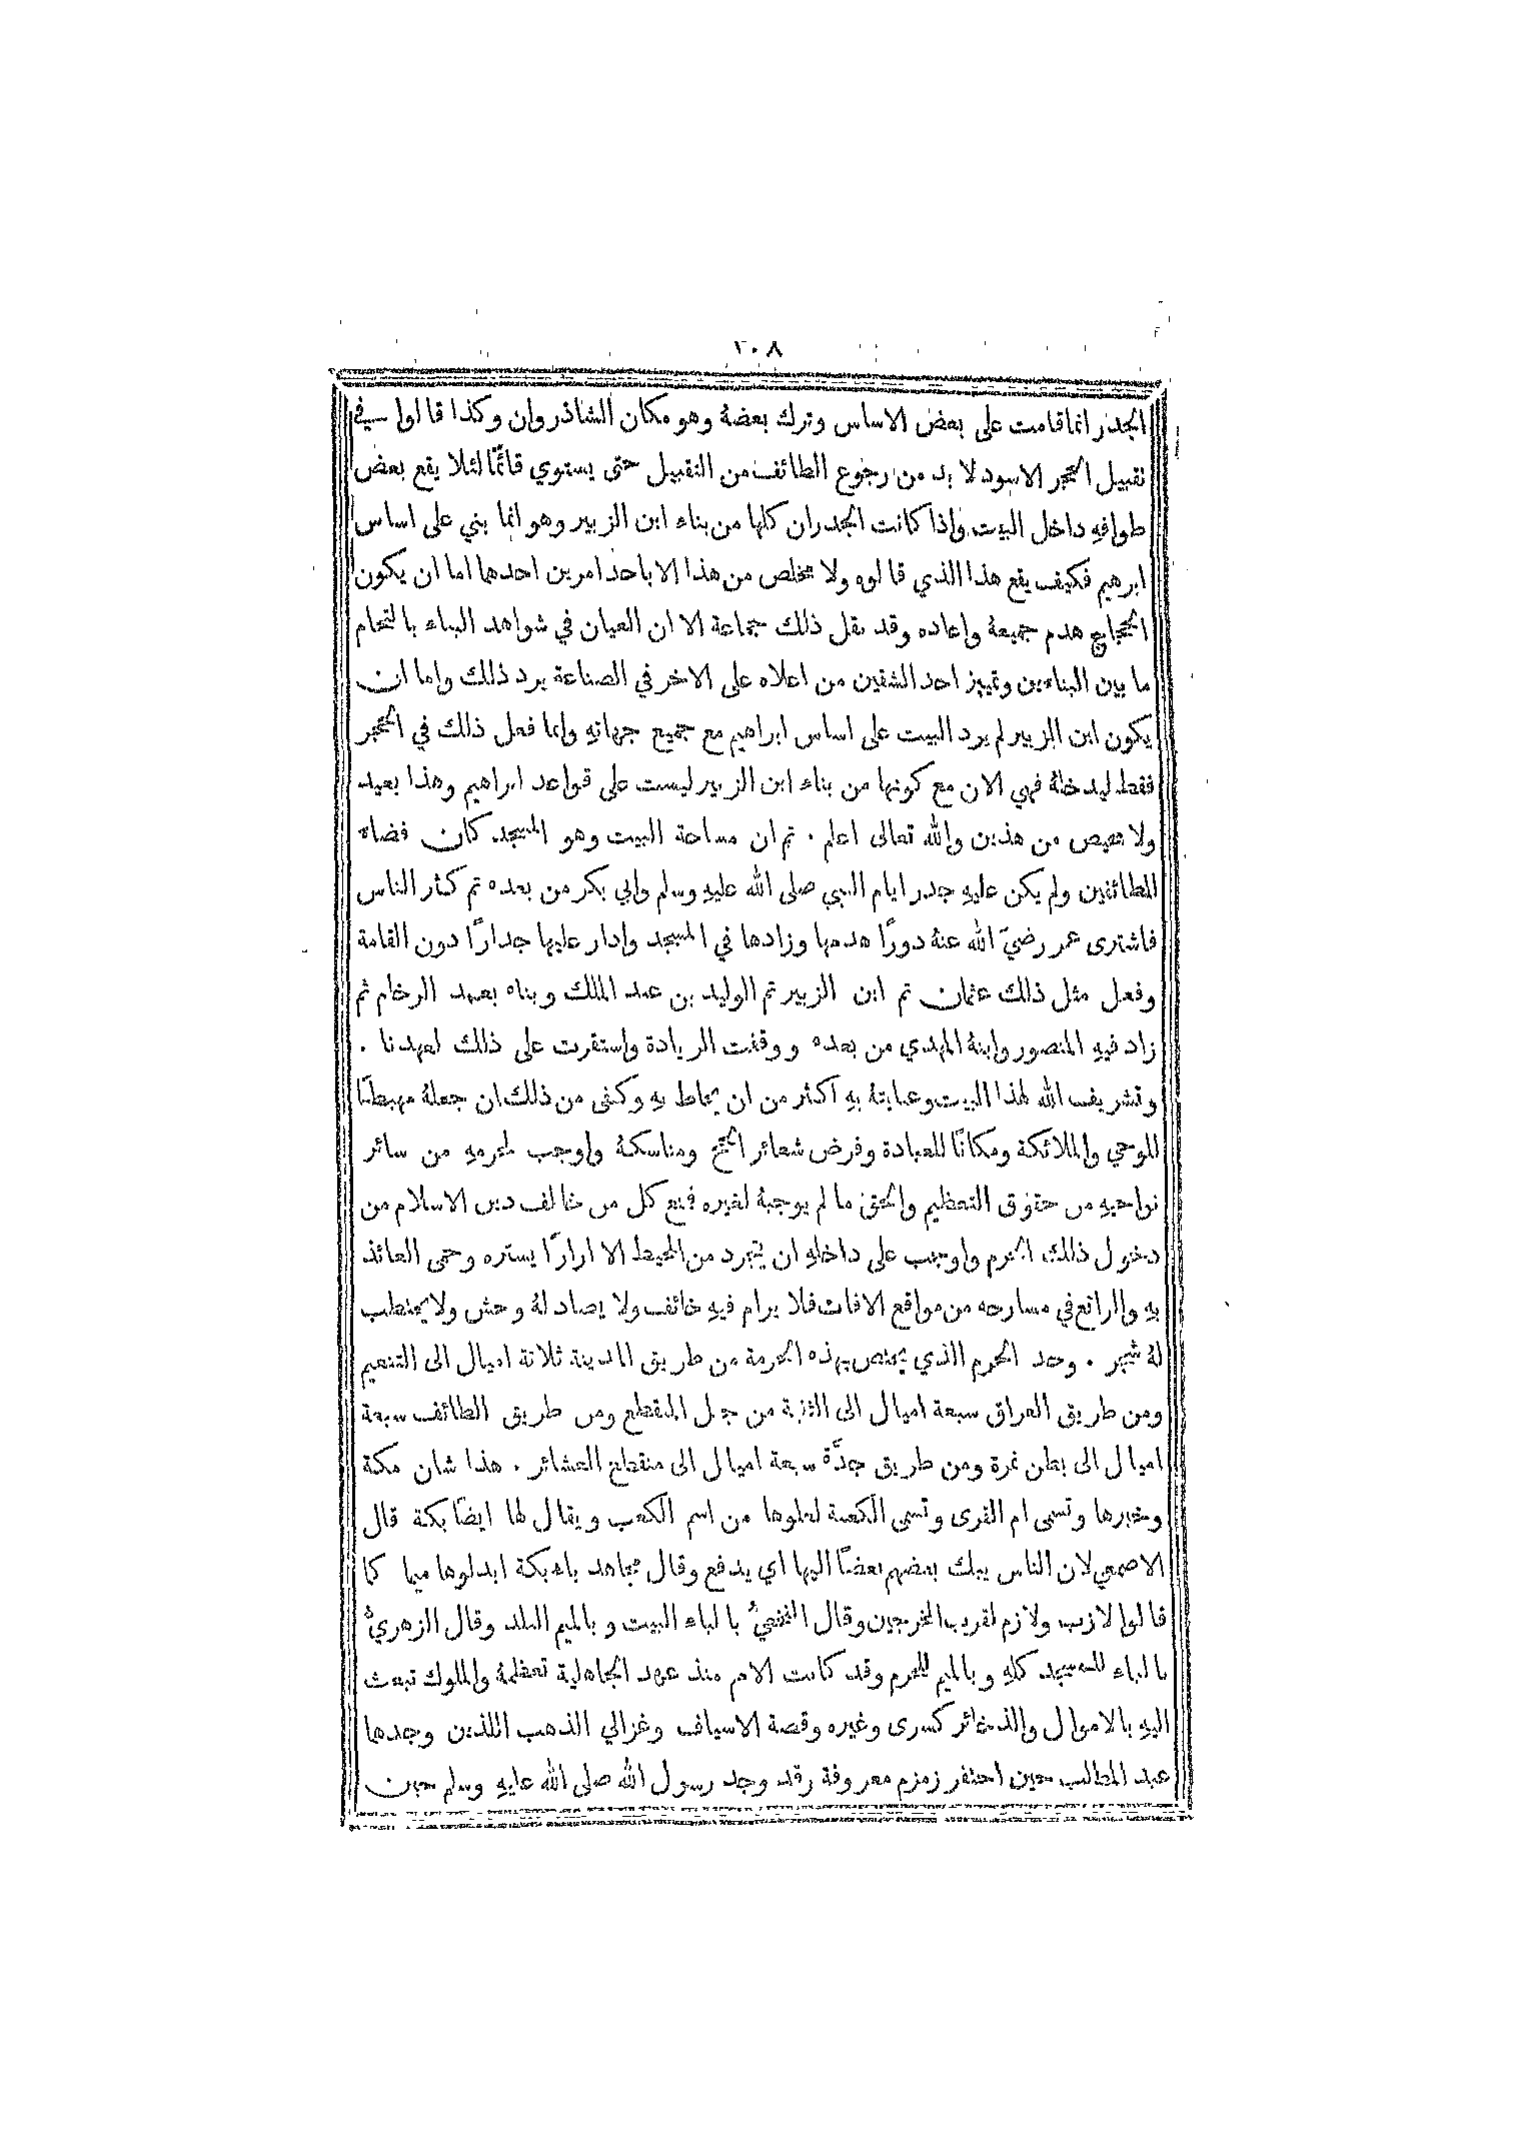 ٣٠٨
الجدر انما قامت على بعض الاساس وترك بعضهُ وهو مكان الشاذروان وكذا قالوا في
تقبيل الحجر الاسود لا بد من رجوع الطائف من التقبيل حتى يستوي قائمًا لئلا يقع بعض
طوافهِ داخل البيت واذا كانت الجدران كلها من بناء ابن الزبير وهو انما بني على اساس
ابرهيم فكيف يقع هذا الذي قالوه ولا مخلص من هذا الا باحد امرين احدهما اما ان يكون
الحجاج هدم جميعهُ واعاده وقد نقل ذلك جماعة الا ان العيان في شواهد البناء بالتحام
ما بين البناءين وتمييز احد الشقين من اعلاه على الاخر في الصناعة يرد ذلك واما ان
يكون ابن الزبير لم يرد البيت على اساس ابراهيم مع جميع جهاتهِ وانما فعل ذلك في الحجر
فقط ليدخلهُ فهي الان مع كونها من بناء ابن الزبير ليست على قواعد ابراهيم وهذا بعيد
ولا محيص من هذين والله تعالى اعلم . ثم ان مساحة البيت وهو المسجد كان فضاء
للطائفين ولم يكن عليهِ جدر ايام النبي صلى الله عليهِ وسلم وابي بكر من بعده ثم كثر الناس
فاشترى عمر رضيَ الله عنهُ دورًا هدمها وزادها في المسجد وادار عليها جدارًا دون القامة
وفعل مثل ذلك عثمان ثم ابن الزبير ثم الوليد بن عبد الملك وبناه بعمد الرخام ثم
زاد فيهِ المنصور وابنهُ المهدي من بعده ووقفت الزيادة واستقرت على ذلك لعهدنا .
وتشريف الله لهذا البيت وعنايتهُ بهِ اكثر من ان يحاط بهِ وكفى من ذلك ان جعلهُ مهبطًا
للوحي والملائكة ومكانًا للعبادة وفرض شعائر الحج ومناسكهُ واوجب لحرمهِ من سائر
نواحيهِ من حقوق التعظيم والحق ما لم يوجبهُ لغيره فمنع كل من خالف دين الاسلام من
دخول ذلك الحرم واوجب على داخلهِ ان يتجرد من المحيط الا ازارًا يستره وحمى العائذ
بهِ والراتع في مسارحه من مواقع الافات فلا يرام فيهِ خائف ولا يصاد لهُ وحش ولا يحتطب
لهُ شجر . وحد الحرم الذي يختص بهذه الحرمة من طريق المدينة ثلاثة اميال الى التنعيم
ومن طريق العراق سبعة اميال الى الثنية من جبل المنقطع ومن طريق الطائف سبعة
اميال الى بطن نمرة ومن طريق جدَّة سبعة اميال الى منقطع العشائر . هذا شان مكة
وخبرها وتسمى ام القرى وتسمى الكعبة لعلوها من اسم الكعب ويقال لها ايضًا بكة قال
الاصمعي لان الناس يبك بعضهم بعضًا اليها اي يدفع وقال مجاهد باء بكة ابدلوها ميما كما
قالوا لازب ولازم لقرب المخرجين وقال النخعيُّ بالباء البيت وبالميم البلد وقال الزهريُّ
بالباء للمسجد كلهِ وبالميم للحرم وقد كانت الامم منذ عهد الجاهلية تعظمهُ والملوك تبعث
اليهِ بالاموال والذخائر كسرى وغيره وقصة الاسياف وغزالي الذهب اللذين وجدهما
عبد المطالب حين احتفر زمزم معروفة وقد وجد رسول الله صلى الله عليهِ وسلم حين